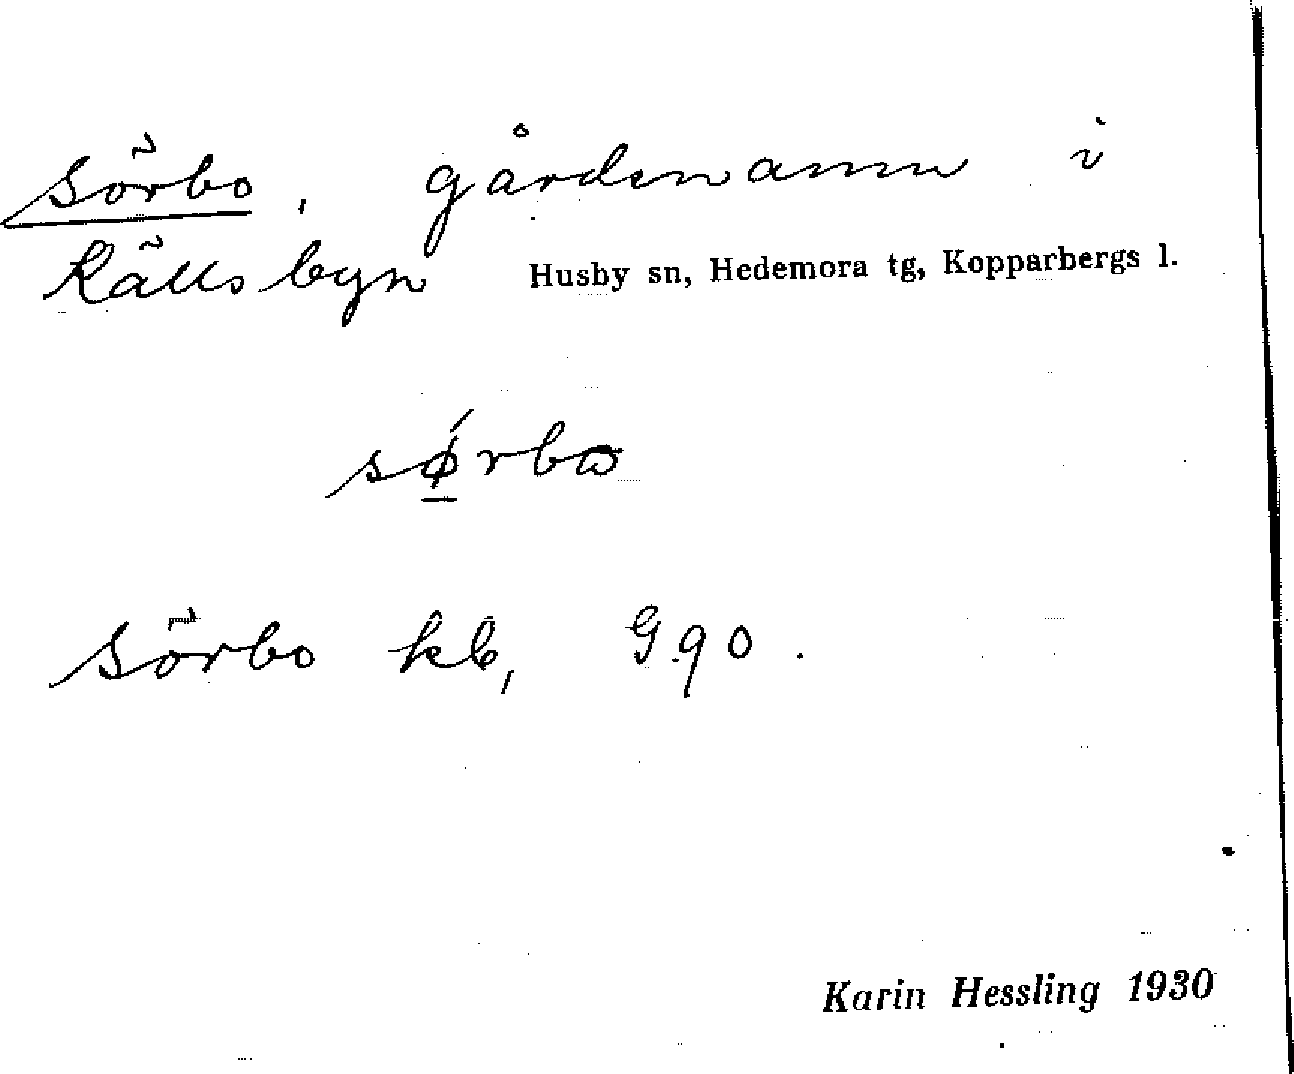 Sörbo, gårdsnamn i
Rällsbyn Husby sn, Hedemora tg, Kopparbergs l.
sǿ̱rbω
Sörbo kb, G.90.
Karin Hessling 1930